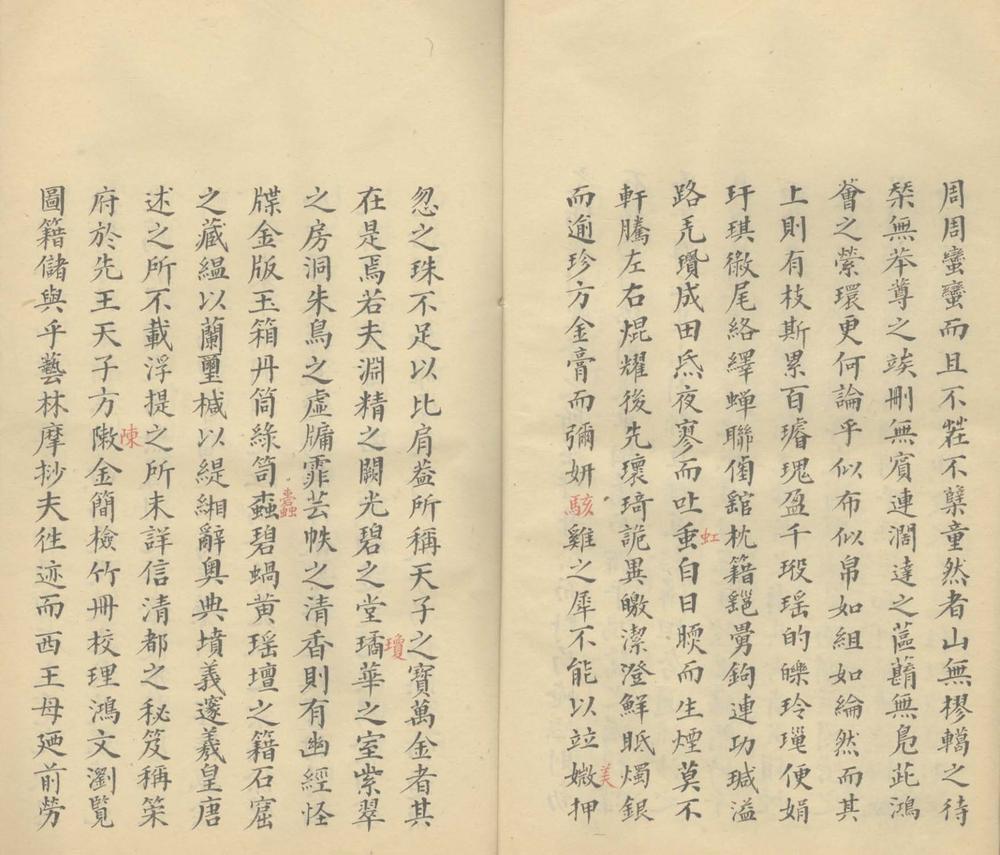 周周蠻蠻而且不茬不櫱童然者山無樛轕之待
榮無莽尊之族刪無賓連濶達之蓲蘛無鳧茈鴻
薈之縈環更何論乎似布似帛如組如綸然而其
上則有枝斯累百璿瑰盈千瑖瑶的皪玲瓏便娟
玕琪徽尾絡繹蟬聯䤥枕籍鼊甖鉤連玏瑊溢
路旡瓊成田炁夜寥而吐䖝白日暥而生煙莫不
軒騰左右焜耀後先瓌琦詭異皦潔澄鮮眂燭銀
而逾珍方金膏而彌妍駭雞之犀不能以竝媺押
忽之珠不足以比肩葢所稱天子之寶萬金者其
在是焉若夫淵精之闕光碧之堂璚華之室紫翠
之房洞朱鳥之虛牗霏芸帙之清香則有幽經怪
牒金版玉箱丹筒綠笥蠧碧蝸黃瑶壇之籍石窟
之藏緼以蘭璽椷以緹緗辭奥典墳義邃羲皇唐
述之所不載浮提之所未詳信清都之秘笈稱筞
府於先王天子方敶金簡檢竹冊校理鴻文瀏覽
圖籍儲與乎藝林摩抄夫徃迹而西王母廼前勞
虹
美
駭
瓊
蠹
陳